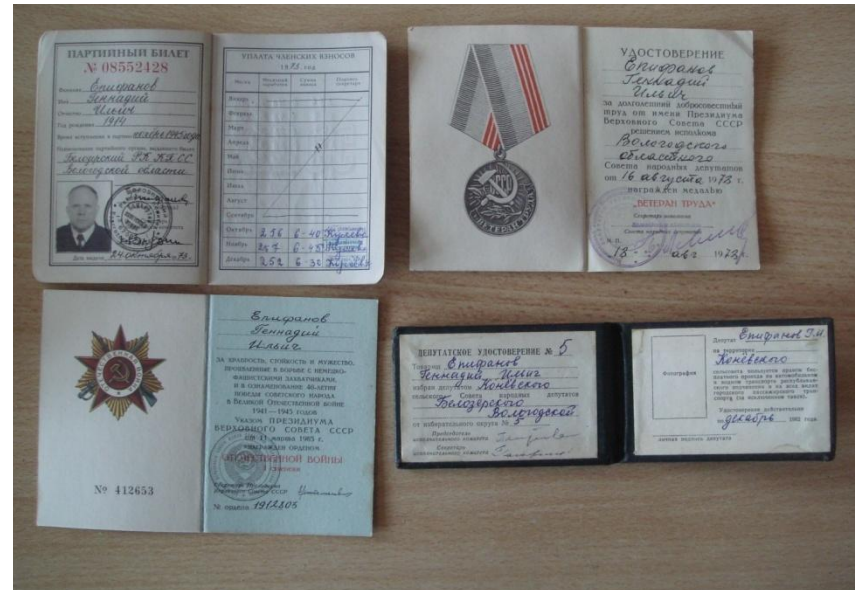 ПАРТИЙНЫЙ БИЛЕТ
№ 08552428
Фамилия Епифанов
Имя Геннадий
Отчество Ильич
Год рождения 1914
Время вступления в партию ноябрь 1945 года
Наименование партийного органа, выдавшего билет
Белозерский РК КПСС
Вологодской области
Дата выдачи 24 октября 73.
УПЛАТА ЧЛЕНСКИХ ВЗНОСОВ
1973 год
Месяц Месячный заработок Сумма взноса Подпись секретаря
Январь
Февраль
Март
Апрель
Май
Июнь
Июль
Август
Сентябрь
Октябрь 216 6-40
Ноябрь 257
Декабрь 252 6-32
УДОСТОВЕРЕНИЕ
Епифанов
Геннадий
Ильич
за долголетний добросовестный
труд от имени Президиума
Верховного Совета СССР
решением исполкома
Вологодского
областного
Совета народных депутатов
от 16 августа 1978 г.
награжден медалью
„ВЕТЕРАН ТРУДА"
Секретарь исполкома
Совета народных депутатов
М. П.
18 авг 1978 г.
СССР
ВЕТЕРАН ТРУДА
ОТЕЧЕСТВЕННАЯ ВОЙНА
№ 412653
Епифанов
Геннадий
Ильич
ЗА ХРАБРОСТЬ, СТОЙКОСТЬ И МУЖЕСТВО,
ПРОЯВЛЕННЫЕ В БОРЬБЕ С НЕМЕЦКО-
ФАШИСТСКИМИ ЗАХВАТЧИКАМИ,
И В ОЗНАМЕНОВАНИЕ 40-ЛЕТИЯ
ПОБЕДЫ СОВЕТСКОГО НАРОДА
В ВЕЛИКОЙ ОТЕЧЕСТВЕННОЙ ВОЙНЕ
1941—1945 ГОДОВ
Указом ПРЕЗИДИУМА
ВЕРХОВНОГО СОВЕТА СССР
от 11 марта 1985 г.
НАГРАЖДЕН ОРДЕНОМ
ОТЕЧЕСТВЕННОЙ ВОЙНЫ
СТЕПЕНИ
Верховного Совета СССР
№ ордена 1912803
ДЕПУТАТСКОЕ УДОСТОВЕРЕНИЕ № 5
Товарищ Епифанов
Геннадий Ильич
избран депутатом Коневского
сельского Совета народных депутатов
Белозерского
Вологодской
от избирательного округа № 5
Председатель
исполнительного комитета
Секретарь
исполнительного комитета
Фотография
Депутат Епифанов Г.И.
на территории
Коневского
сельсовета пользуется правом бес-
платного проезда на автомобильном
и водном транспорте республикан-
ского подчинения и на всех видах
городского пассажирского транс-
порта (за исключением такси).
Удостоверение действительно
по декабрь 1982 года
Личная подпись депутата